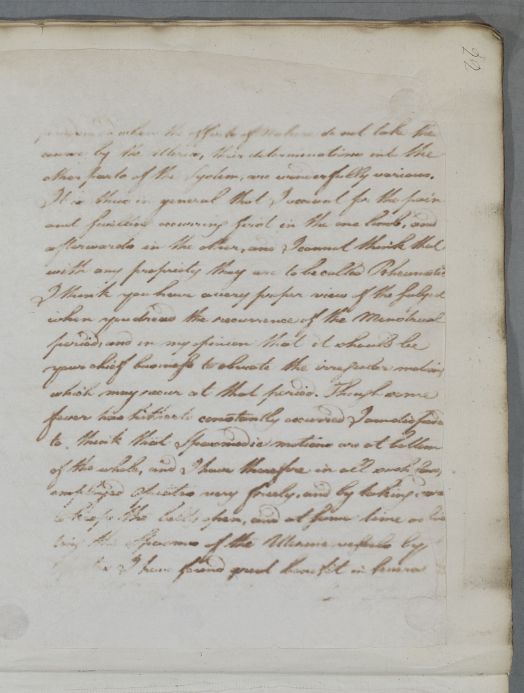 22
when the efforts of Nature do not take the
by the Uterus, their determinations into the
other parts of the System, are wonderfully various.
It is thus in general that I account for the pain
and swelling occurring first in the one limb, and
afterwards in the other, and I cannot think that
with any propriety they are to be called Rheumatic
I think you have a very proper view of the Subject
when you dread the recurrence of the Menstrual
period, and in my opinion that it should be
your chief business to obviate the irregular motions
which may occur at that period. Though some
fever has hitherto constantly occurred I am disposed
to think that Spasmodic motions are at bottom
of the whole, and I have therefore in all such
employed Opiates very freely, and by taking care
to keep the belly open, and at same time
the Spasms of the Uterine vessels by
I have found great benefit in